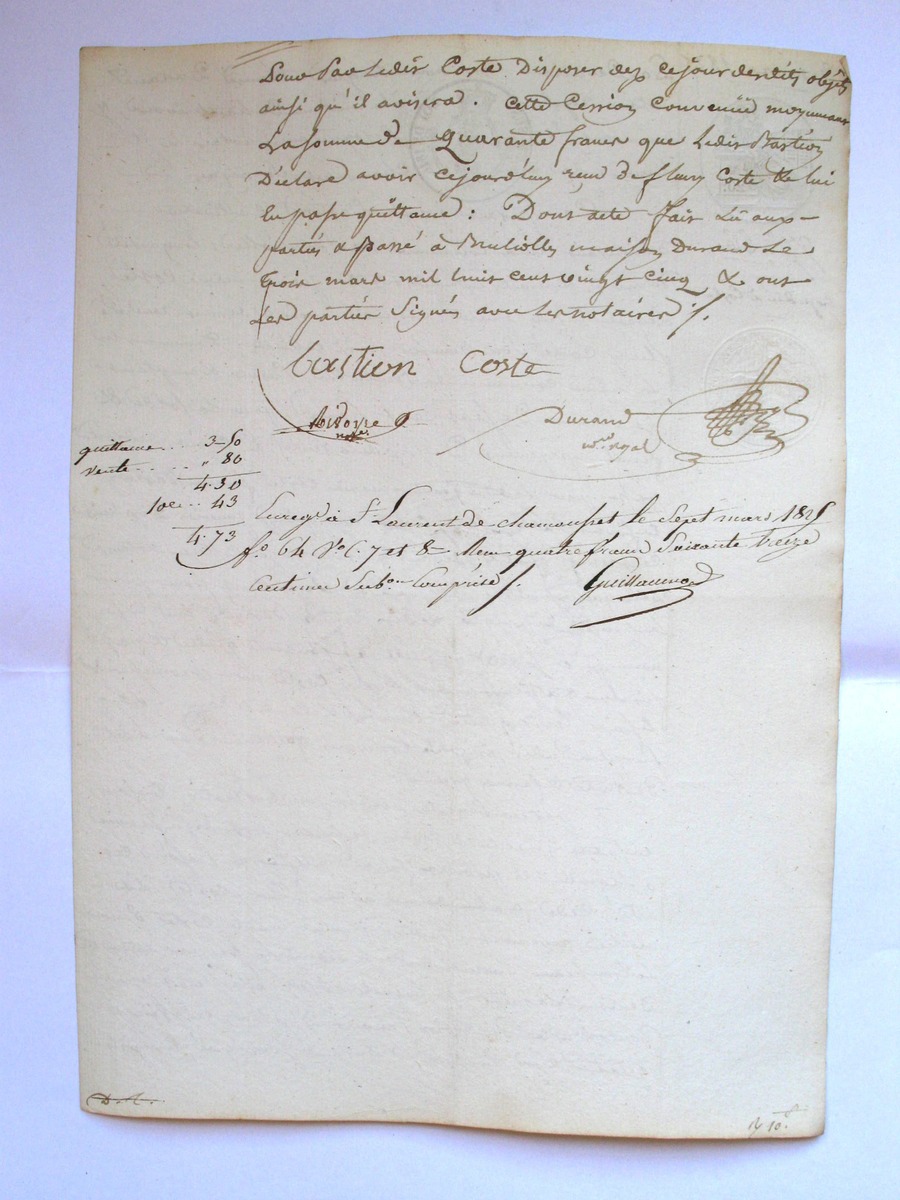 Pour par ledit Coste Disposer dez cejour desdits objets
ainsi qu'il avisera. Cette Cession Convenüe moyennant
La somme de Quarante francs que Ledit Bastion
Déclare avoir cejourd'huy reçu de fleury Coste & lui
En passe quittance: Dont acte fait Lû aux
parties & passé à Brulliolles maison Durand Le
trois mars mil huit cent vingt cinq & ont
Les parties Signés avec les notaires /.
bastion Coste
nore
Durand
nre royal
quittance .. 3-50
vente ... " 80
4.30
10e .. 43
4.73
Enregé à St Laurent de chamousset le Sept mars 1825
fo 64 Vo C. 7 et 8 Reçu quatre francs Soixante treize
Centimes Subon Comprise /. Guillaumod
10.